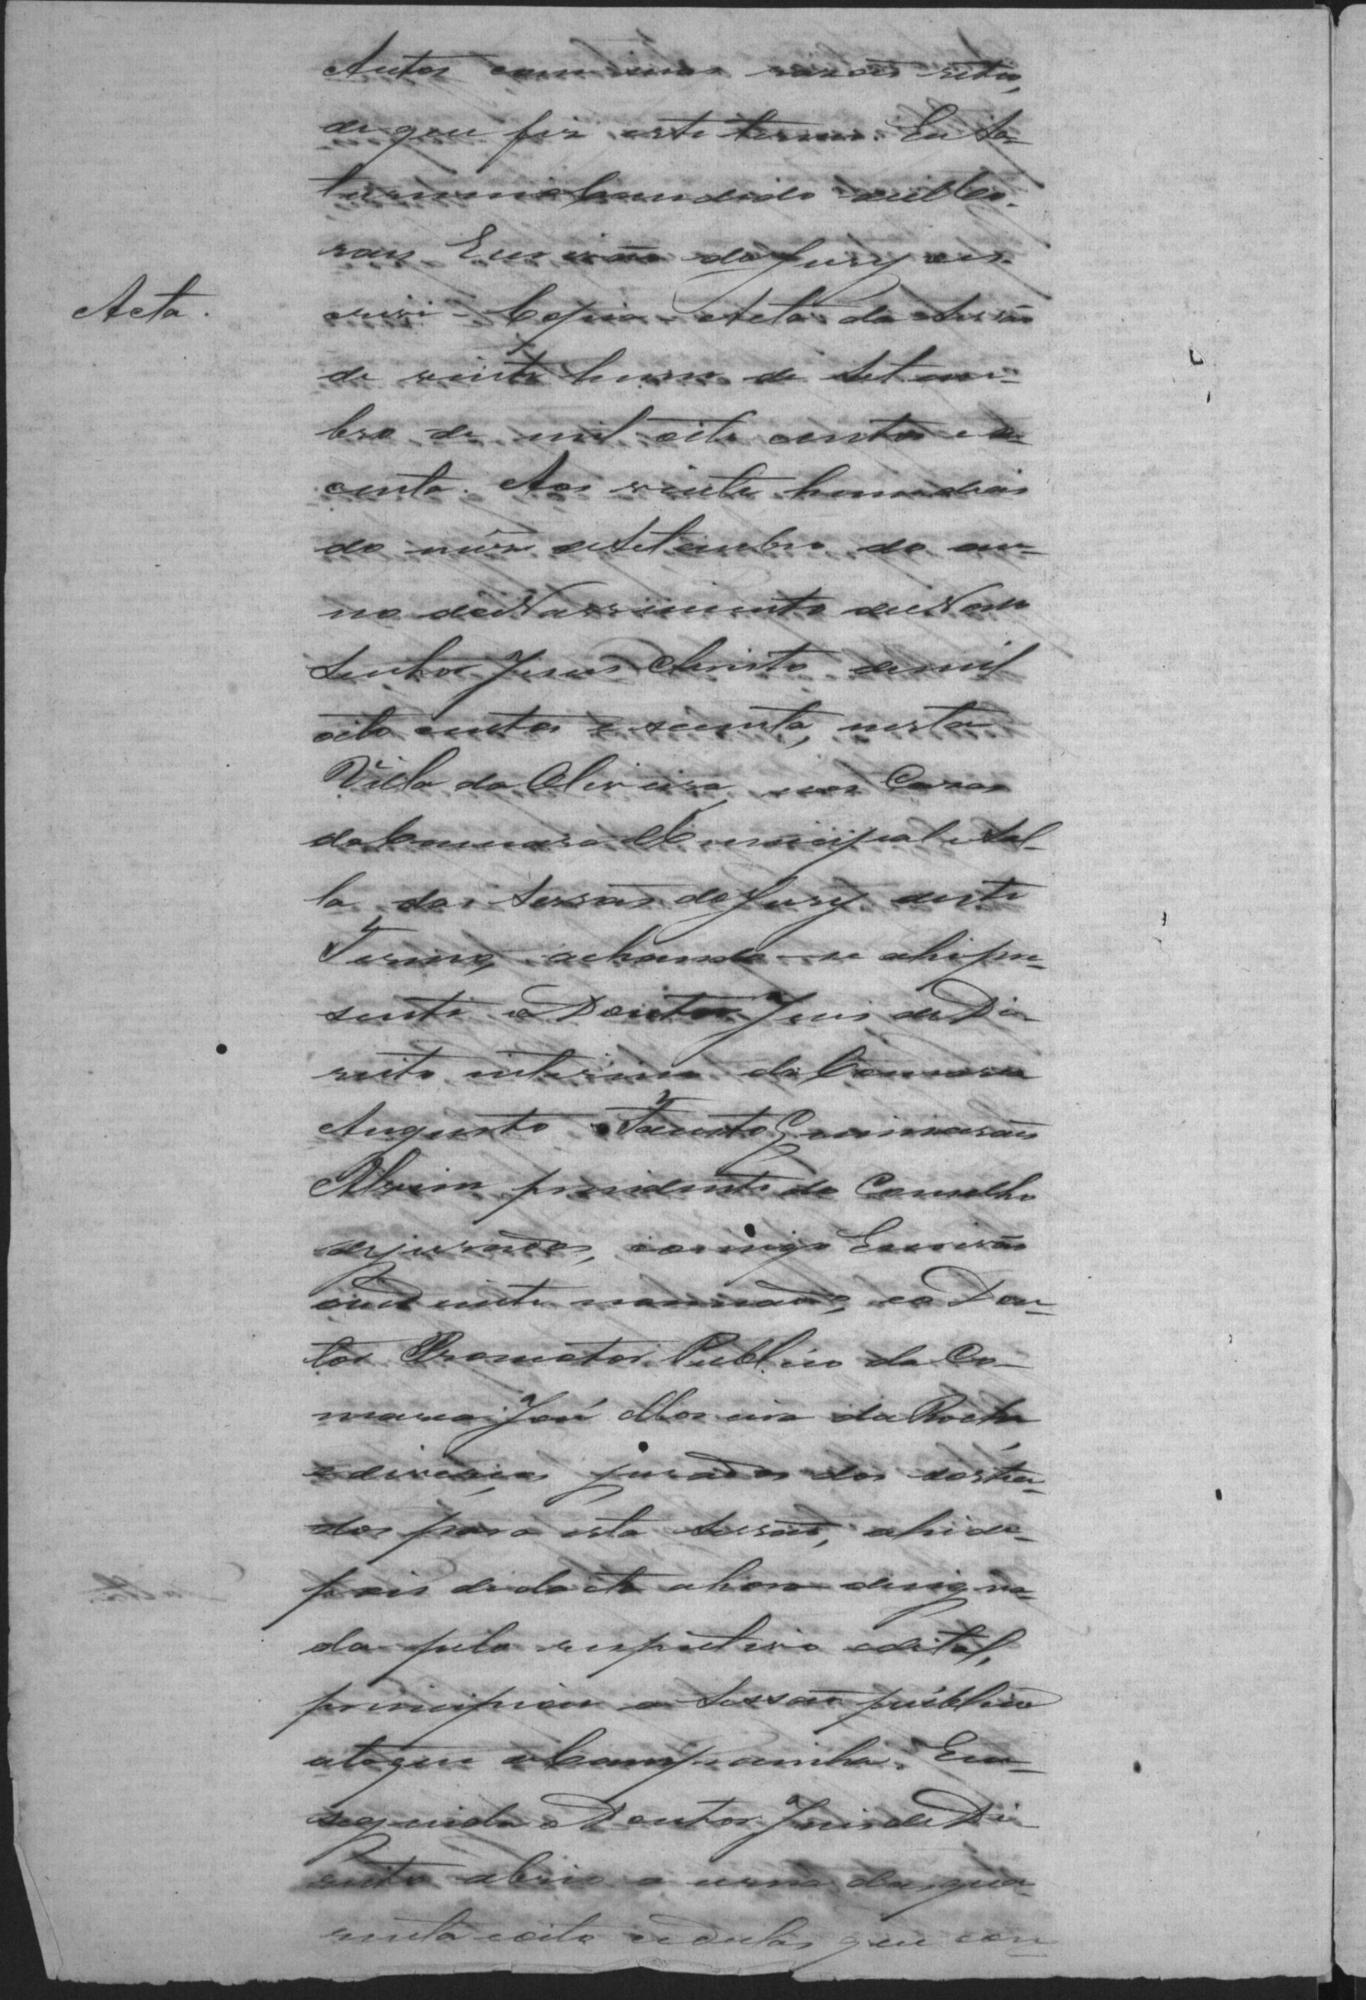 Autos com
de que fiz este termo. Eu Sa-
turnino Candido
rais Escrivão do Jury es-
Acta.
crevi - Copia - Acta da Sessão
de vinte hum de Setem-
bro de mil oito centos e se-
centa. Aos vinte hum dias
do mêz de Setembro do an-
no do Nascimento de Nosso
Senhor Jesus Christo de mil
oito centos e secenta, nesta
Villa da Oliveira, nos Casas
da Camara Municipal e Sal-
la das Sessões do Jury deste
Termo, achando-se ahi pre-
sente o Doutor Juis de Di-
reito interino da Comarca
Augusto Fausto Guimarães
Alvim presidente do Conselho
de jurados, comigo Escrivão
adiante nommado, e o Dou-
tor Promotor Publico da Co-
marca José Moreira da Rocha
e diversos jurados dos sortea-
dos para esta Sessão, ahi de-
pois de dacta a hora designa-
da pelo respectivo edital,
principiou a Sessão publica
a toque de Campainha. Em
seguida o Doutor Juis de Di-
reito abrio a urna das qua-
renta e oito cedulas que con-